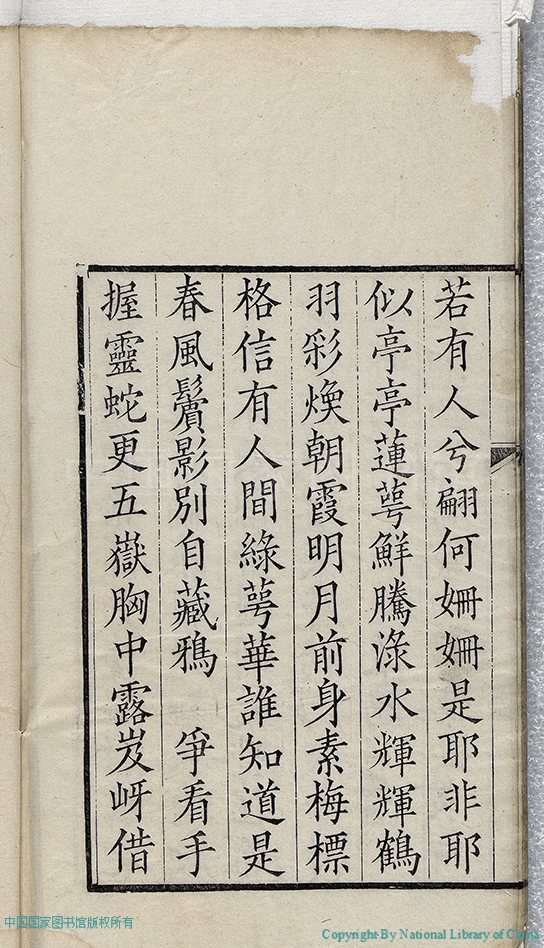 若有人兮翩何姍姍是耶非耶
似亭亭蓮萼鮮騰渌水輝輝鶴
羽彩煥朝霞明月前身素梅標
格信有人間綠萼華誰知道是
春風鬢影別自藏鴉　爭看手
握靈蛇更五嶽胸中露岌岈借
中国国家图书馆版权所有
Copyright By National Library of China